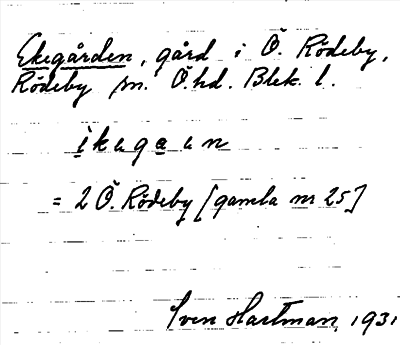 Ekegården, gård i Ö. Rödeby,
Rödeby sn. Ö.hd. Blek. l.
ikɛgaɛn
= 2 Ö. Rödeby [gamla nr 25]
Sven Hartman, 1931